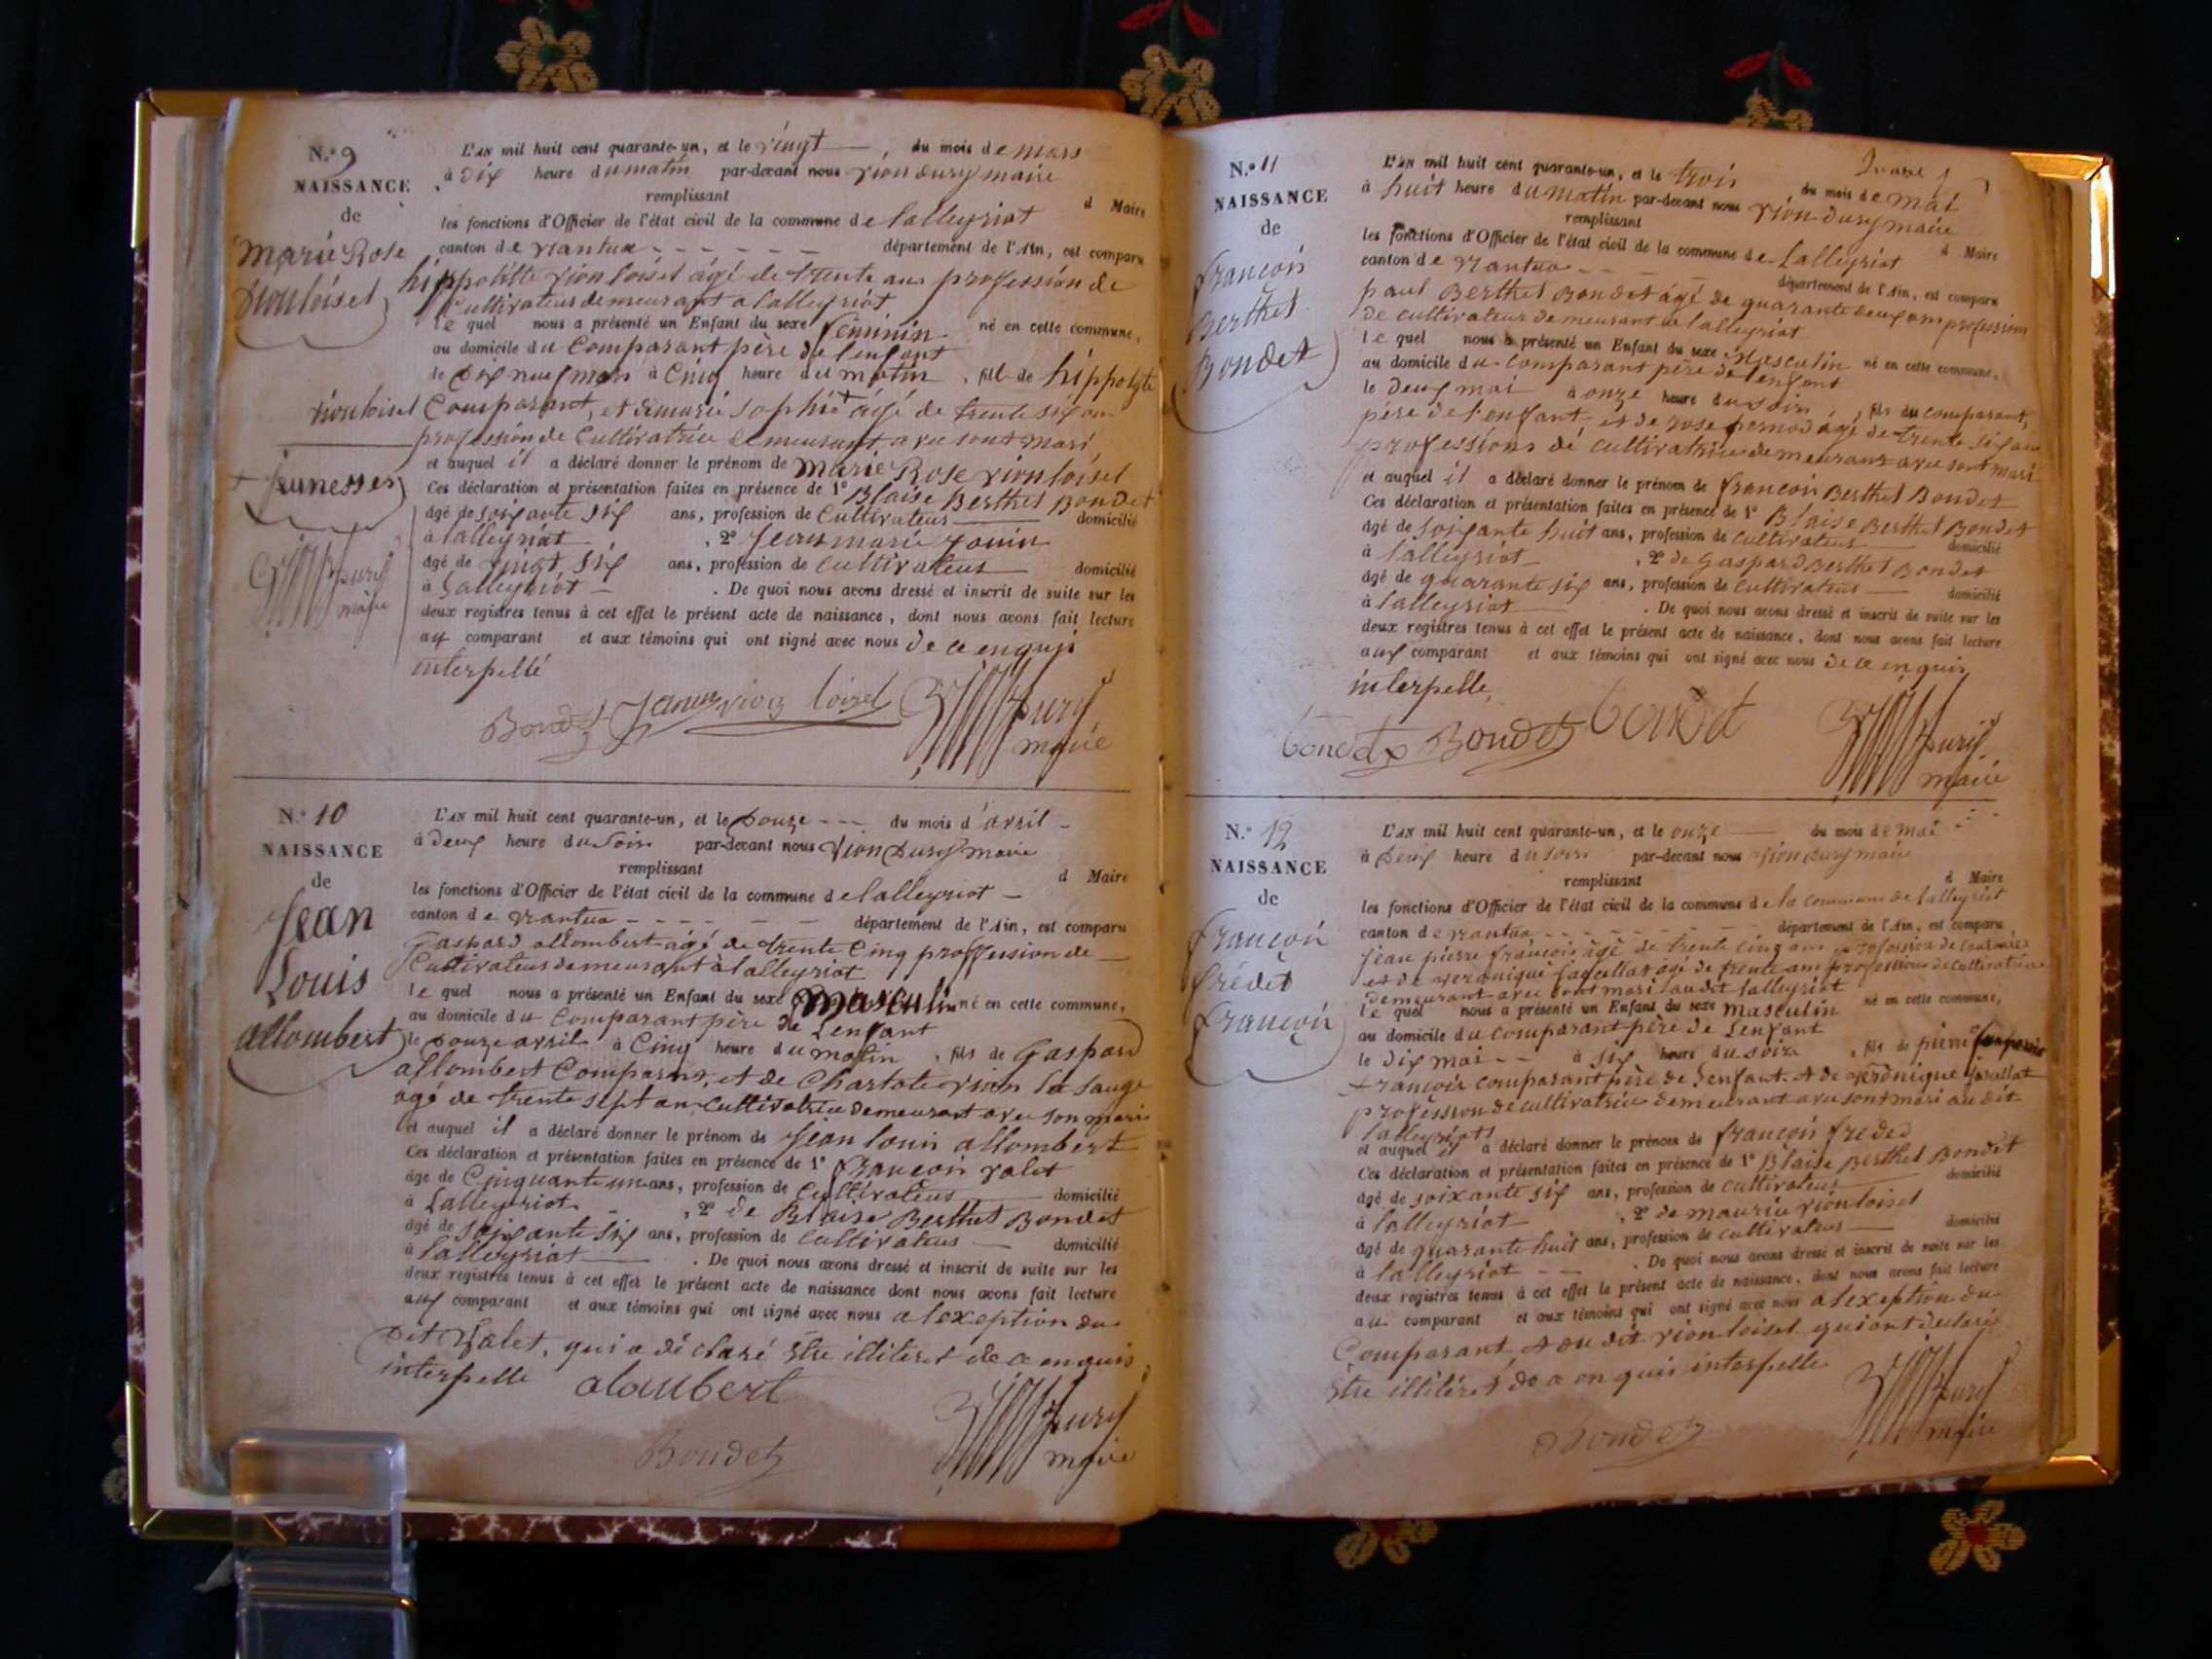 N.° 9
NAISSANCE
de
Marie Rose
vionloiset
L'AN mil huit cent quarante-un, et le vingt, du mois de mars
à dix heure du matin par-devant nous vion dury maire
remplissant
d Maire
les fonctions d'Officier de l'état civil de la commune de lalleyriat
canton de nantua département de l'Ain, est comparu
hippolitte vionloiset âgé de trente ans profession de
Cultivateur demeurant a lalleyriat
le quel nous a présenté un Enfant du sexe féminin né en cette commune,
au domicile du Comparant père de l'enfant
le dix neuf mars à Cinq heure du matin, fille de hippolyte
vionloiset Comparant, et de marie Sophie âgé de trente six an
profession de Cultivatrice demeurant avec sont mari
+ jeunesses
et auquel il a déclaré donner le prénom de Marie Rose vionloiset
Ces déclaration et présentation faites en présence de 1° Blaise Berthet Bondet
âgé de soixante six ans, profession de Cultivateur domicilié
à lalleyriat, 2° Jean marie
âgé de vingt six ans, profession de Cultivateur domicilié
à lalleyriat. De quoi nous avons dressé et inscrit de suite sur les
deux registres tenus à cet effet le présent acte de naissance, dont nous avons fait lecture
aux comparant et aux témoins qui ont signé avec nous de ce enquis
interpellé
dury
maire
Bondet vion loizet dury
maire
N.° 10
NAISSANCE
de
Jean
Louis
allombert
L'AN mil huit cent quarante-un, et le douze du mois d'avril
à deux heure du soir par-devant nous vion dury maire
remplissant
d Maire
les fonctions d'Officier de l'état civil de la commune de lalleyriat
canton de nantua département de l'Ain, est comparu
Gaspard allombert âgé de trente Cinq proffession de
Cultivateur demeurant à lalleyriat
le quel nous a présenté un Enfant du sexe masculin né en cette commune,
au domicile du Comparant père de Lenfant
le douze avril à Cinq heure du matin, fils de Gaspard
allombert Comparant, et de Charlote vion la
âgé de trente sept an Cultivatrice demeurant avec son mari
et auquel il a déclaré donner le prénom de Jean louis allombert
Ces déclaration et présentation faites en présence de 1° françois valet
âgé de Cinquante un ans, profession de Cultivateur domicilié
à Lalleyriat, 2° de Blaise Berthet Bondet
âgé de soixante six ans, profession de Cultivateur domicilié
à lalleyriat. De quoi nous avons dressé et inscrit de suite sur les
deux registres tenus à cet effet le présent acte de naissance dont nous avons fait lecture
aux comparant et aux témoins qui ont signé avec nous a lexeption du
dit valet, qui a déclaré être illiteret de ce enquis
interpelle alaubert
Bondet dury
maire
N.° 11
NAISSANCE
de
françois
Berthet
Bondet
L'AN mil huit cent quarante-un, et le trois du mois de mai
à huit heure du matin par-devant nous vion dury maire
remplissant
d Maire
les fonctions d'Officier de l'état civil de la commune de Lalleyriat
canton de nantua département de l'Ain, est comparu
paul Berthet Bondet âgé de quarante deux ans profession
de cultivateur demeurant a lalleyriat
le quel nous a présenté un Enfant du sexe Masculin né en cette commune,
au domicile du comparant père de lenfant
le deux mai à onze heure du soir, fils du comparant,
père de l'enfant, et de rose pernod âgé de trente six ans
professions de cultivatrice demeurant avec sont mari
et auquel il a déclaré donner le prénom de françois Berthet Bondet
Ces déclaration et présentation faites en présence de 1° Blaise Berthet Bondet
âgé de soixante huit ans, profession de cultivateur domicilié
à lalleyriat, 2° de Gaspard Berthet Bondet
âgé de quarante six ans, profession de cultivateur domicilié
à lalleyriat. De quoi nous avons dressé et inscrit de suite sur les
deux registres tenus à cet effet le présent acte de naissance, dont nous avons fait lecture
aux comparant et aux témoins qui ont signé avec nous de ce enquis
interpelle,
Bondet Bondet dury
maire
N.° 12
NAISSANCE
de
françois
frédet
françois
L'AN mil huit cent quarante-un, et le onze du mois de mai
à deux heure du soir par-devant nous vion dury maire
remplissant
d Maire
les fonctions d'Officier de l'état civil de la commune de la commune de lalleyriat
canton de nantua département de l'Ain, est comparu
Jean pierre françois âgé de trente cinq ans profession de
et de veronique âgé de trente ans profession de cultivatrice
demeurant avec sont mari au dit lalleyriat
le quel nous a présenté un Enfant du sexe masculin né en cette commune,
au domicile du comparant père de Lenfant
le dix mai à six heure du soir, fils de pierre
françois comparant père de Lenfant et de véronique
profession de cultivatrice demeurant avec sont mari au dit
lalleyriat
et auquel il a déclaré donner le prénom de françois freded
Ces déclaration et présentation faites en présence de 1° Blaise Berthet Bondet
âgé de soixante six ans, profession de cultivateur domicilié
à lalleyriat, 2° de maurice vionloiset
âgé de quarante huit ans, profession de cultivateur domicilié
à lalleyriat. De quoi nous avons dressé et inscrit de suite sur les
deux registres tenus à cet effet le présent acte de naissance, dont nous avons fait lecture
au comparant et aux témoins qui ont signé avec nous a lexeption du
Comparant et du dit vionloiset qui ont declaré
être illitéret de ce enquis interpelle
Bondet dury
maire